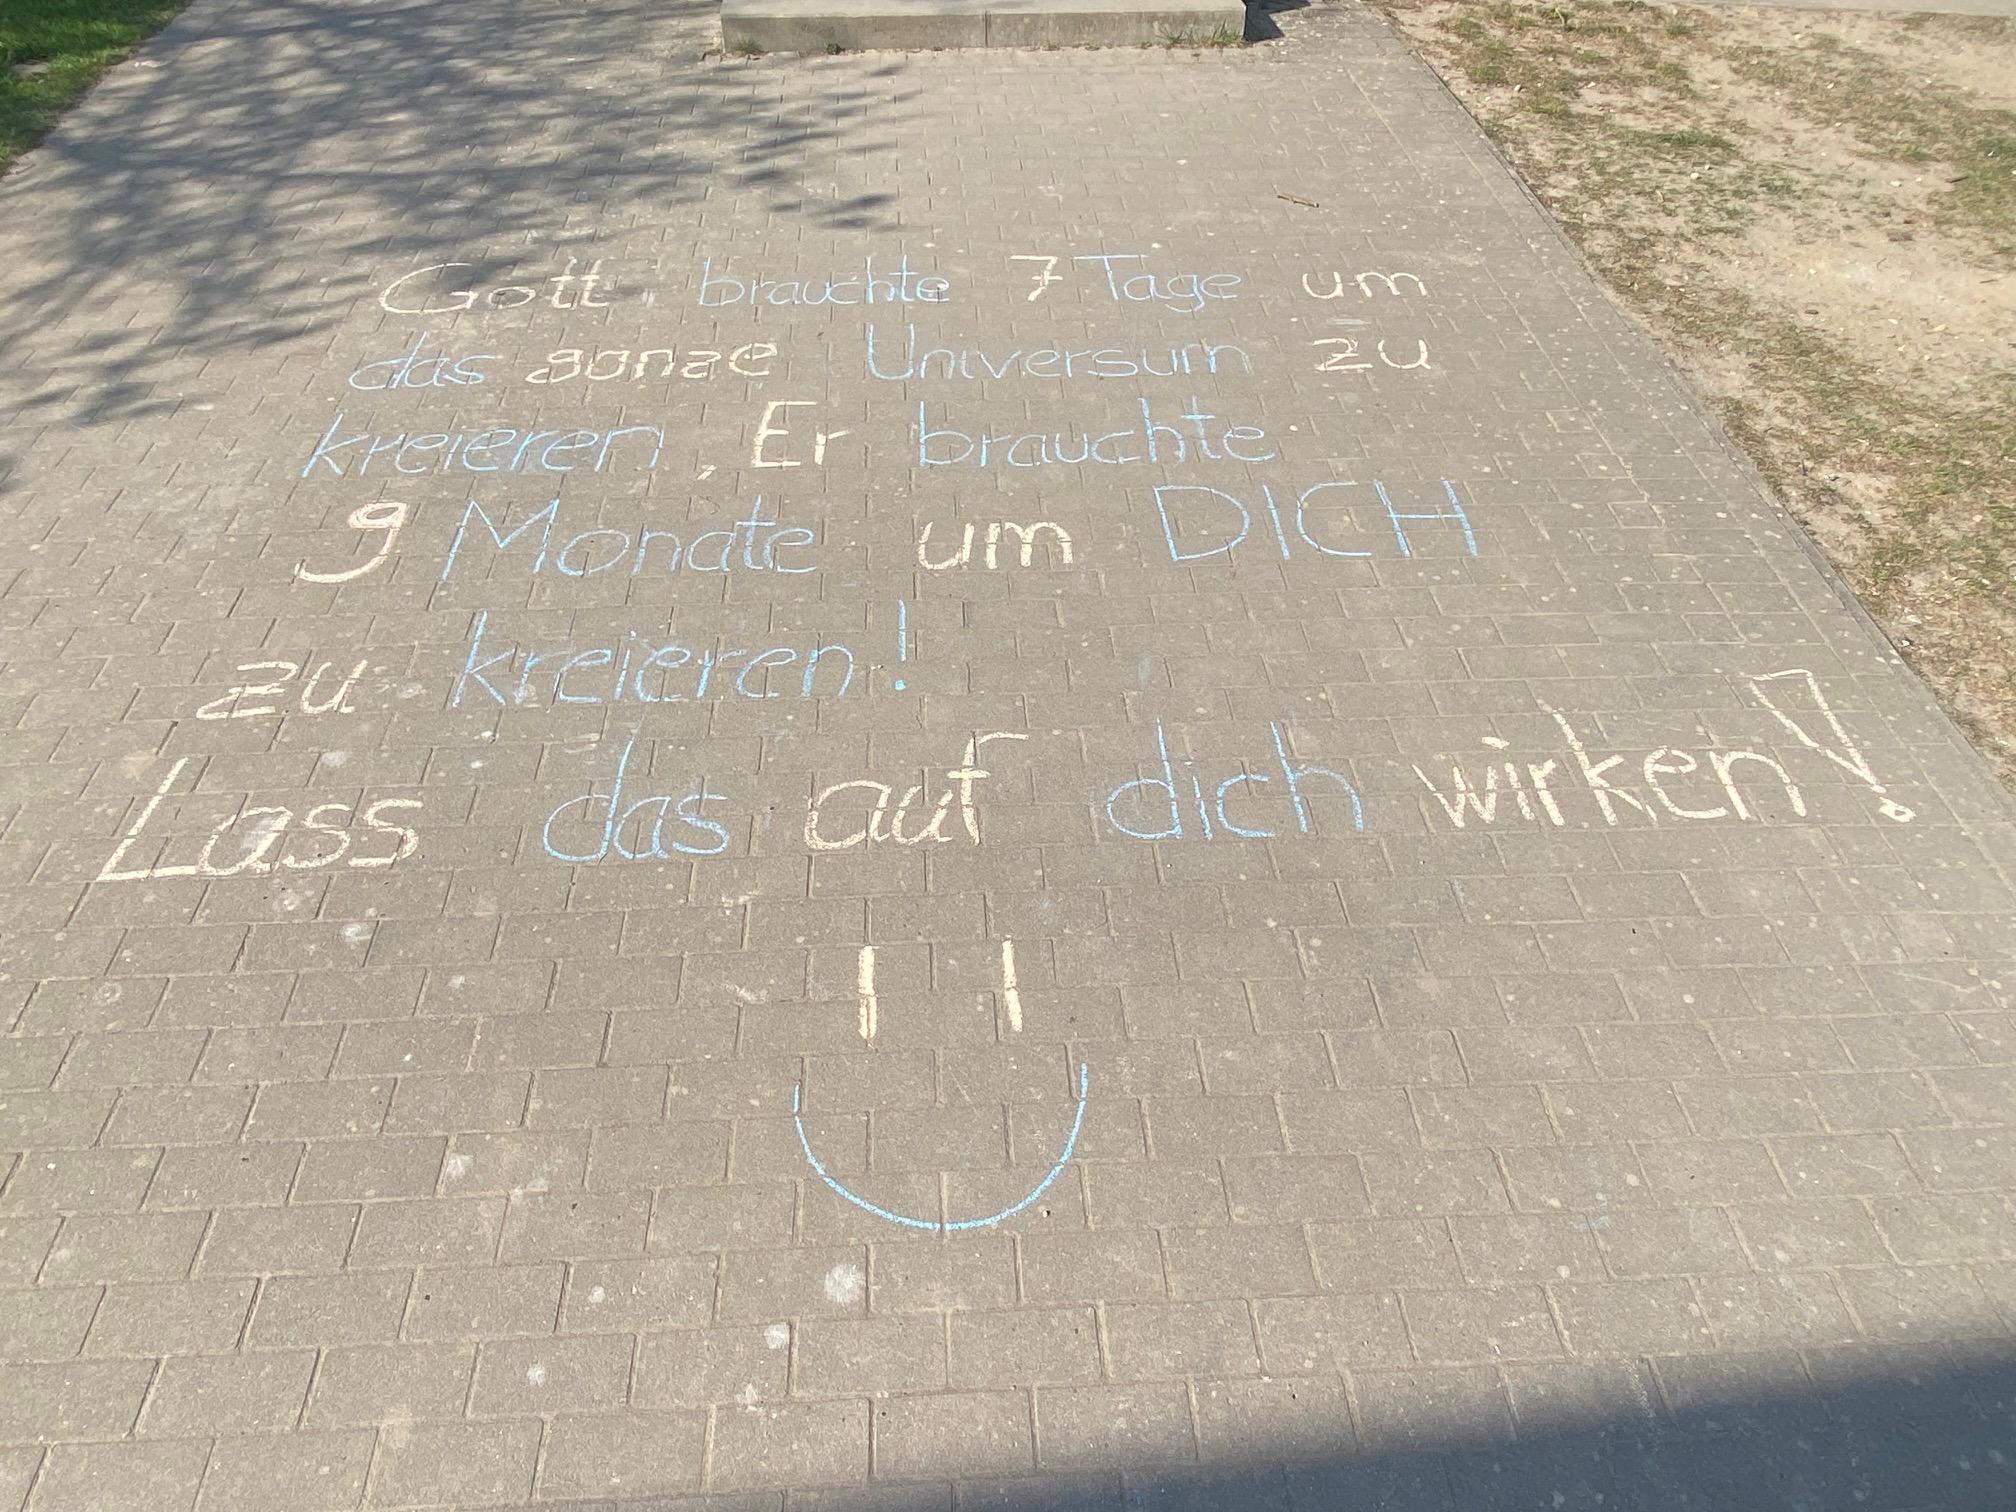 Gott brauchte 7 Tage um
das ganze Universum zu
kreieren, Er brauchte
9 Monate um DICH
zu kreieren!
Lass das auf dich wirken!